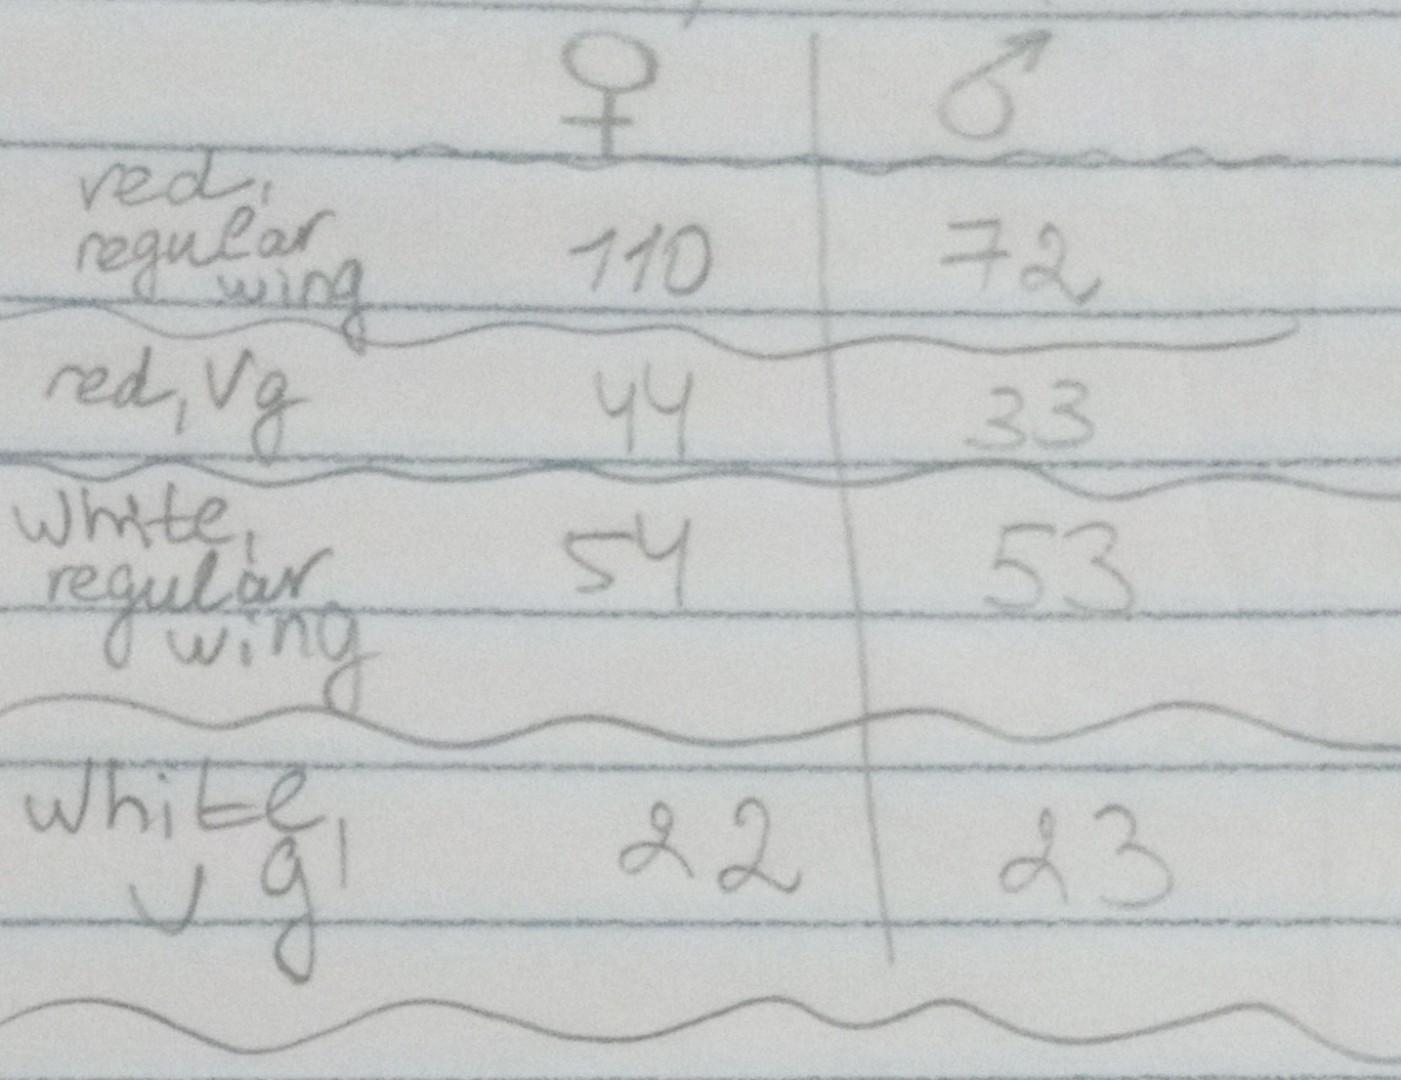 ♀ ♂
red,
regular
wing 110 72
red, Vg 44 33
white,
regular 54 53
wing
white, 22 23
vg